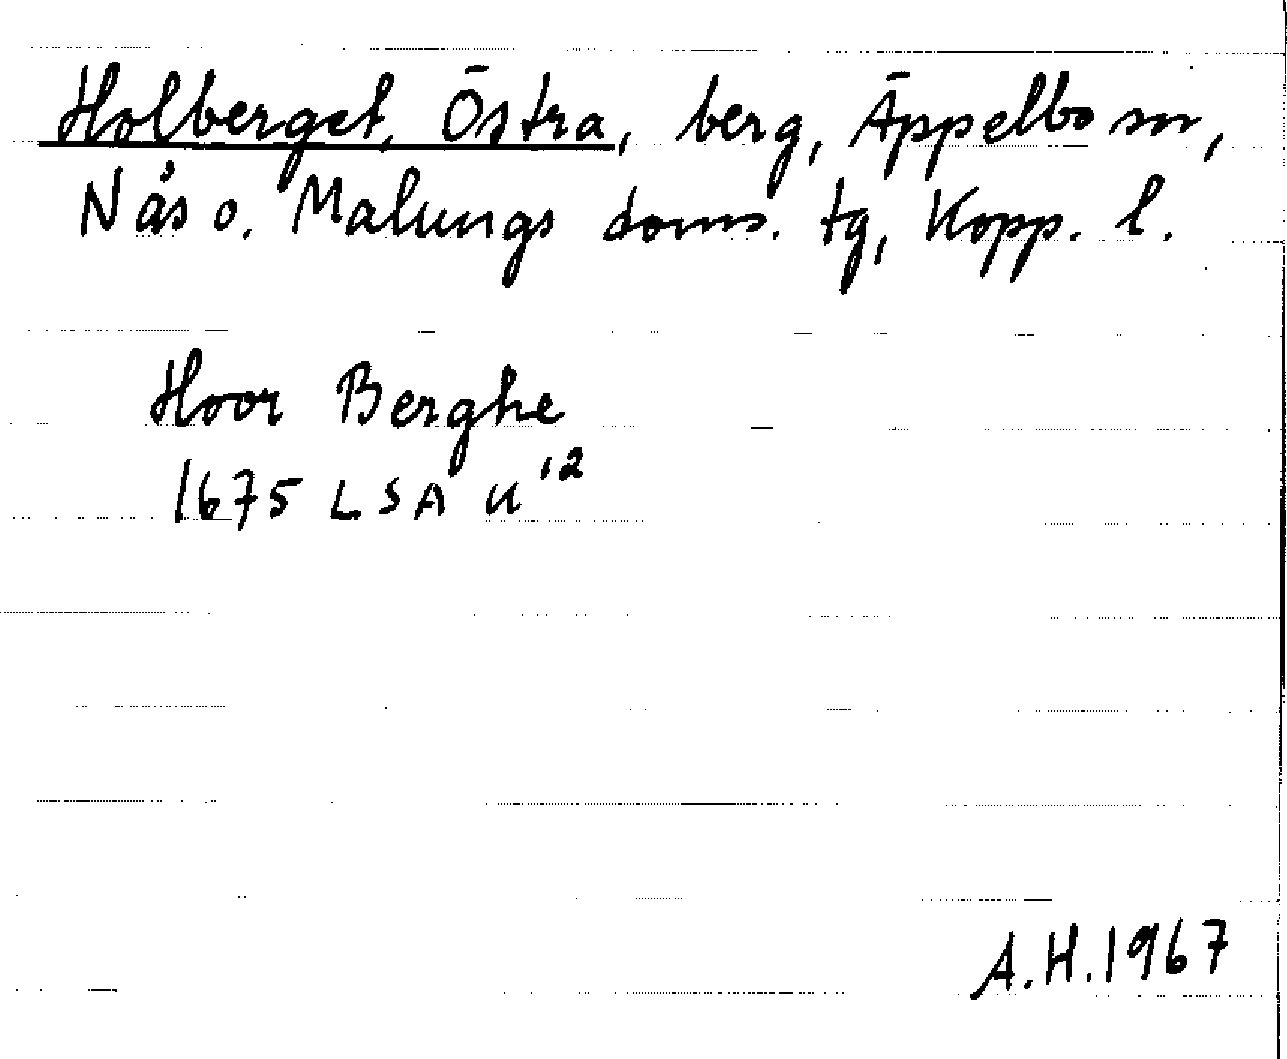 Holberget, Östra, berg, Äppelbo sn,
Nås o. Malungs doms. tg, Kopp. l.
Hoor Berghe
1675 LSA K 12
A.H. 1967